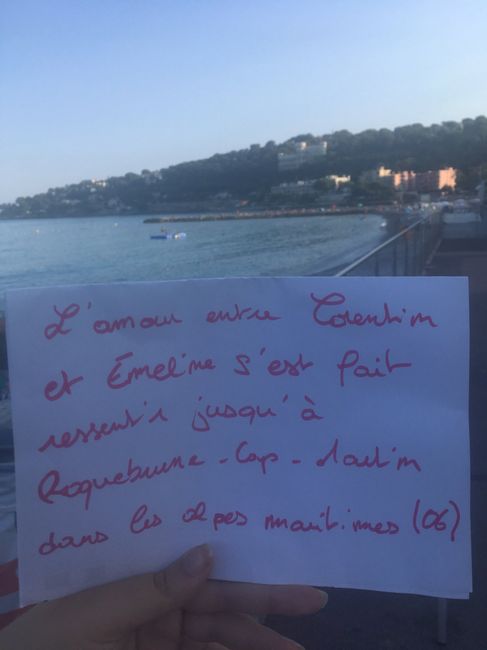 L'amour entre Corentin
et Émeline s'est fait
ressentir jusqu'à
Roquebrune-Cap-Martin
dans les alpes maritimes (06)